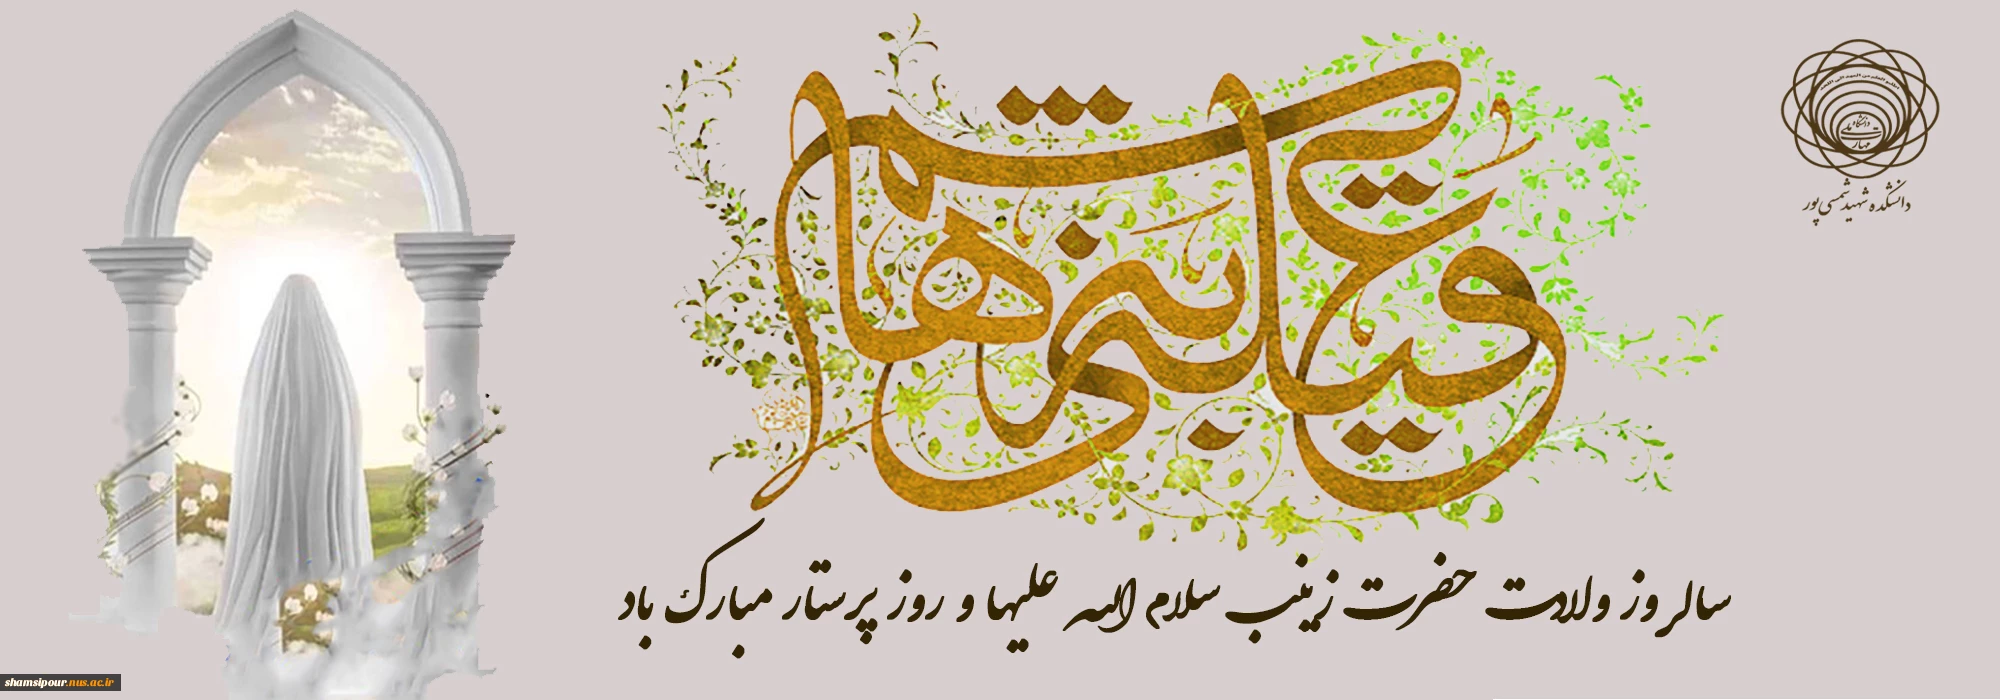 یا عقیله بنی هاشم
دانشگاه
ملی
مهارت
دانشکده شهید شمسی پور
سالروز ولادت حضرت زینب سلام الله علیها و روز پرستار مبارک باد
shamsipour.nus.ac.ir